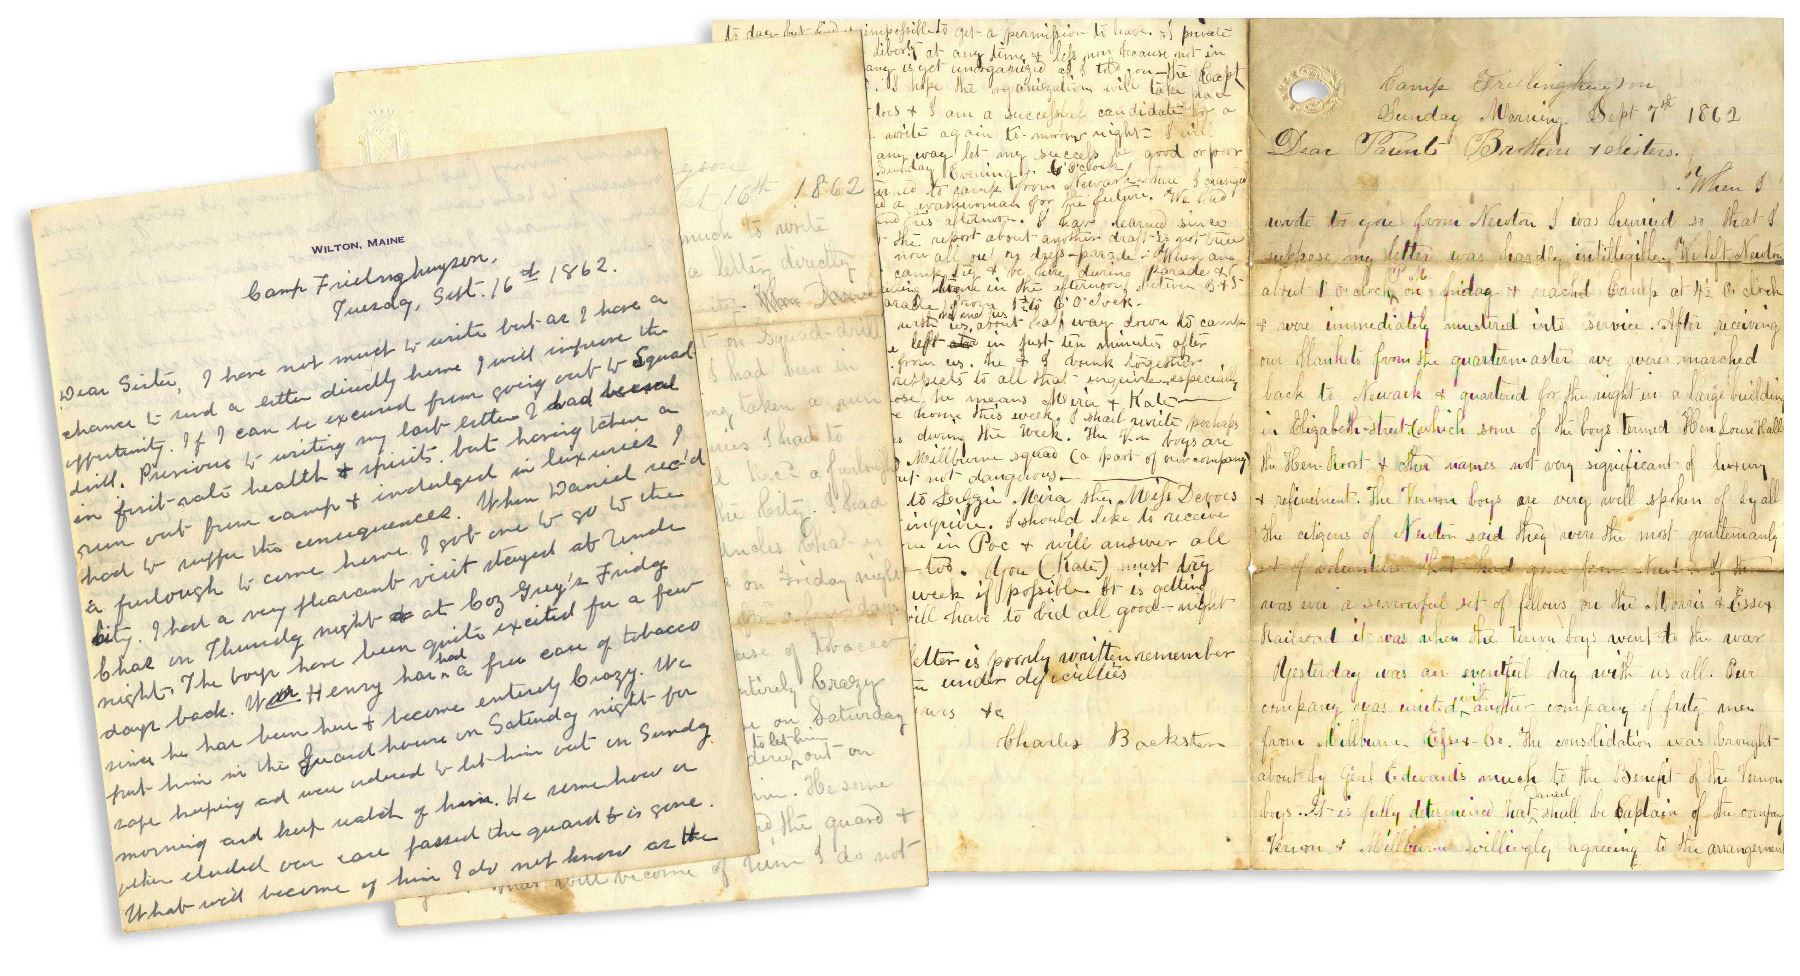 WILTON, MAINE
Camp Frielinghuyson,
Tuesday, Sept. 16th 1862.
Dear Sister, I have not much to write but as I have a
chance to send a letter directly home I will improve the
opportunity. If I can be excused from going out to Squad
drill. Previous to writing my last letter I had been
in first-rate health & spirits. but having taken a
run out from camp & indulged in luxuries I
had to suffer the consequences. When Daniel rec'd
a furlough to come home I got one to go to the
City. I had a very pleasant visit stayed at Uncle
Chas on Thursdy night at Coz Guy's Fridy
night. The boys have been quite excited for a few
days back. Wm Henry has had a free case of tobacco
since he has been here & become entirely Crazy. We
put him in the Guard house on Saturday night for
safe keeping and were ordered to let him out on Sundy
morning and keep watch of him. He some how or
other eluded our care passed the guard & is gone.
What will become of him I do not know as the
16th 1862
much to write
a letter directly
When Daniel
on Squad-drill
I had been in
taken a run
I had to
a furlough
the City. I had
Uncles Chas
on Friday night
for a few days
case of tobacco
entirely Crazy
on Saturday
to let him
out on
him. He some
the guard &
What will become of him I do not
to day but find it impossible to get a permission to leave. If private
liberty at any time & less now because not in
is yet unorganized as I told you - the Capt
I hope the organization will take place
does & I am a successful candidate for a
write again to-morrow night - I will
any way let my success be good or poor
Sunday Evening 6 O'clock
to camp from Newark where I engaged
a washwoman for the future. We had
this afternoon. I have learned since
the report about another draft is not true
now all out on dress-parade - When any
camp try & be here during parade &
here in the afternoon between
from 5½ to 6 O'clock.
with us about half way down to camp
left in just ten minutes after
from us. he & I drank together
respects to all that inquire especially
he means Mira & Kate
home this week. I shall write perhaps
during the week. The Vn boys are
Millburne squad (a part of our company)
but not dangerous.
to Lizzie Mira the Miss Devoes
inquire. I should like to receive
me in Poc & will answer all
too. You (Kate) must try
week if possible. It is getting
will have to bid all good-night
letter is poorly written remember
under dificulties
Yours &c
Charles Backster
Camp Frielinghuyson
Sunday Morning Sept 7th 1862
Dear Parents Brothers & Sisters.
When I
wrote to you from Newton I was hurried so that I
suppose my letter was hardly intilligible. We left Newton
about 1 O'clock P.M. on friday & reachd Camp at 4½ O'clock
& were immediately mustered into service. After receiving
our blankets from the quartermaster we were marched
back to Newark & quartered for the night in a large building
in Elizabeth-street (which some of the boys termed Hen Louse Hall
the Hen Roost & other names not very significant of luxury
& refinement. The Vernon boys are very well spoken of by all
the citizens of Newton said they were the most gentlemanly
set of volunteers that had gone from Newton. If there
was ever a sorrowful set of fellows on the Morris & Essex
Railroad it was when the Vernon boys went to the war
Yesterday was an eventful day with us all. Our
company was united with another company of forty men
from Millburne Essex-Co. The consolidation was brought-
about-by Gent Edwards much to the Benefit of the Vernon
boys. It is fully determined that Daniel shall be Captain of the company
Vernon & Millburne willingly agreeing to the arrangement